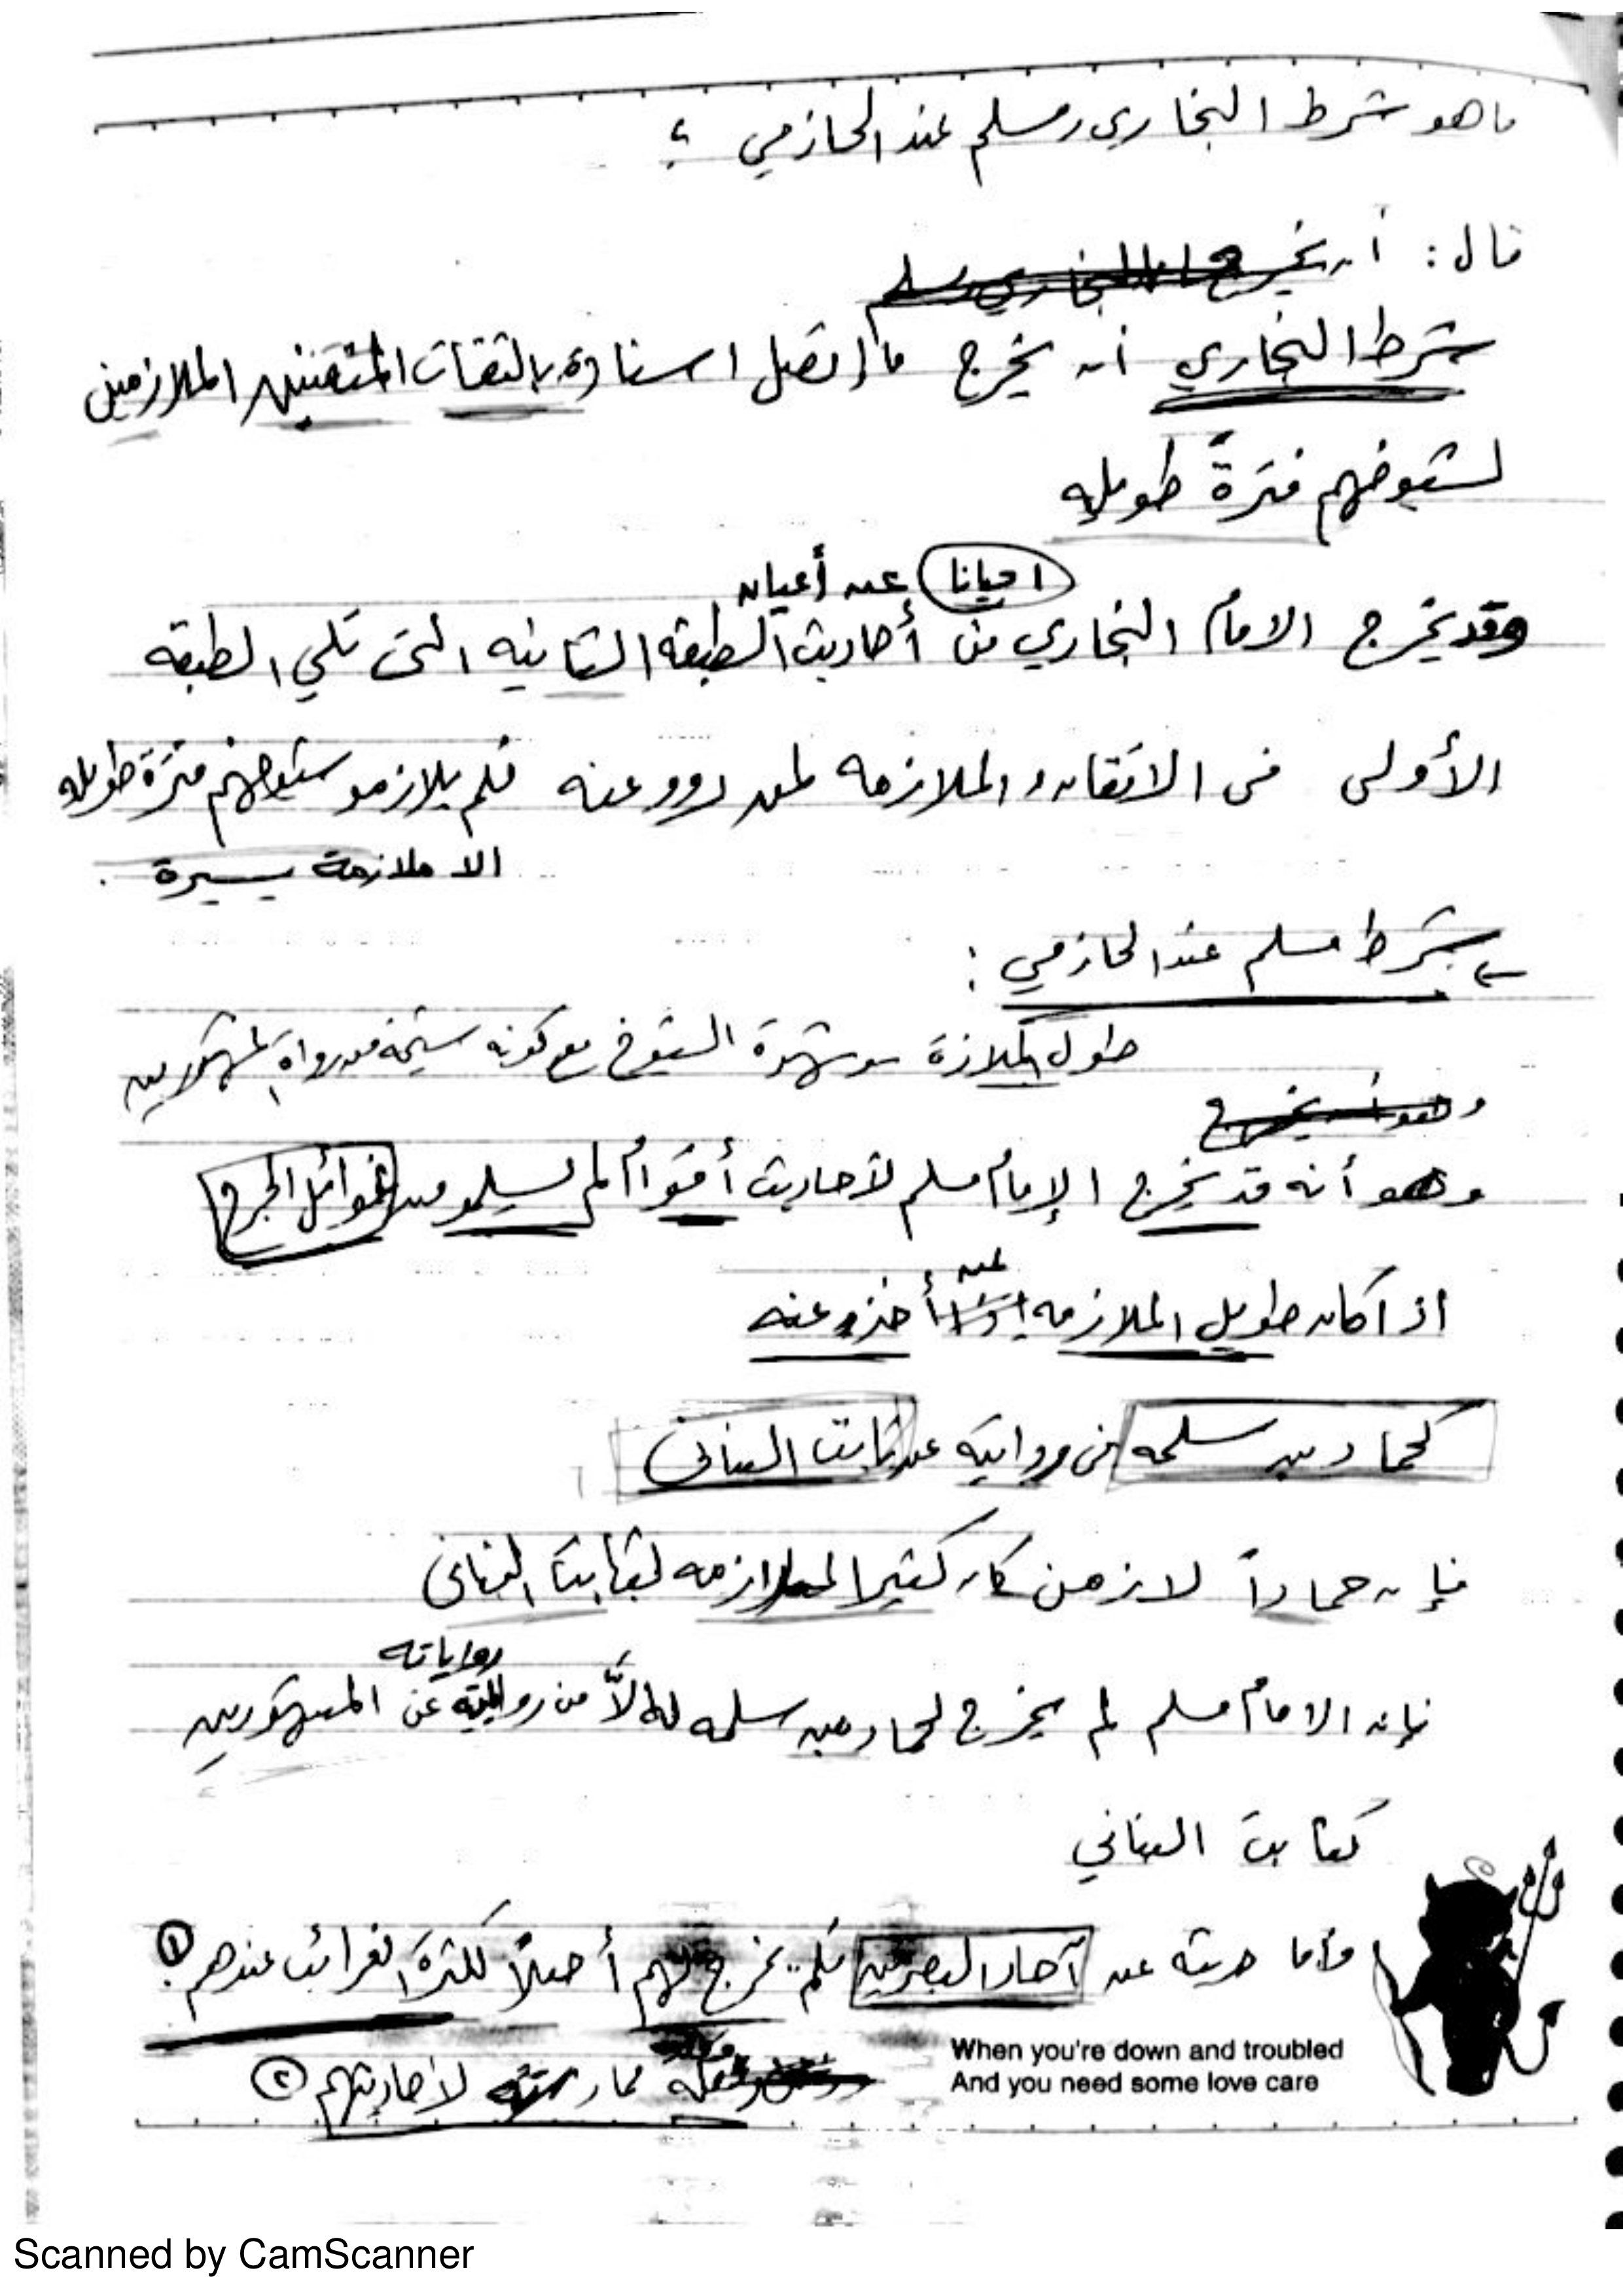 ما هو شرط البخاري ومسلم عند الحازمي ؟
قال : أن يخرج
شرط البخاري أن يخرج ما اتصل اسناده بالثقات المتقنين الملازمين
لشيوخهم فترة طويله
احيانا عن أعيان
وقد يخرج الامام البخاري من أحاديث الطبقه الثانيه التى تلي الطبقه
الأولى فى الاتقان والملازمه لمن روو عنه فلم يلازمو شيوخهم فترة طويله
الا ملازمة يسيرة .
شرط مسلم عند الحازمي :
طول الملازة شهرة الشيوخ مع كونه شيخه من رواة المشهورين
وهو أن يخرج
وهو أنه قد يخرج الإمام مسلم لأحاديث أقوام لم يسلمو من غوائل الجرح
اذا كان طويل الملازمه أخذو عنه
كحماد بن سلمه فى روايته عن ثابت البنانى
فإن حماداً كان كثير الملازمه لثابت البنانى
رواياته
فإن الامام مسلم لم يخرج لحماد بن سلمه إلاَّ من عن المشهورين
كثابت البناني
وأما حديثه عن آحاد البصريين فلم يخرج لهم أصلاً لكثرة الغرائب عندهم ①
وقلة ممارسته لأحاديثهم ②
When you're down and troubled
And you need some love care
Scanned by CamScanner